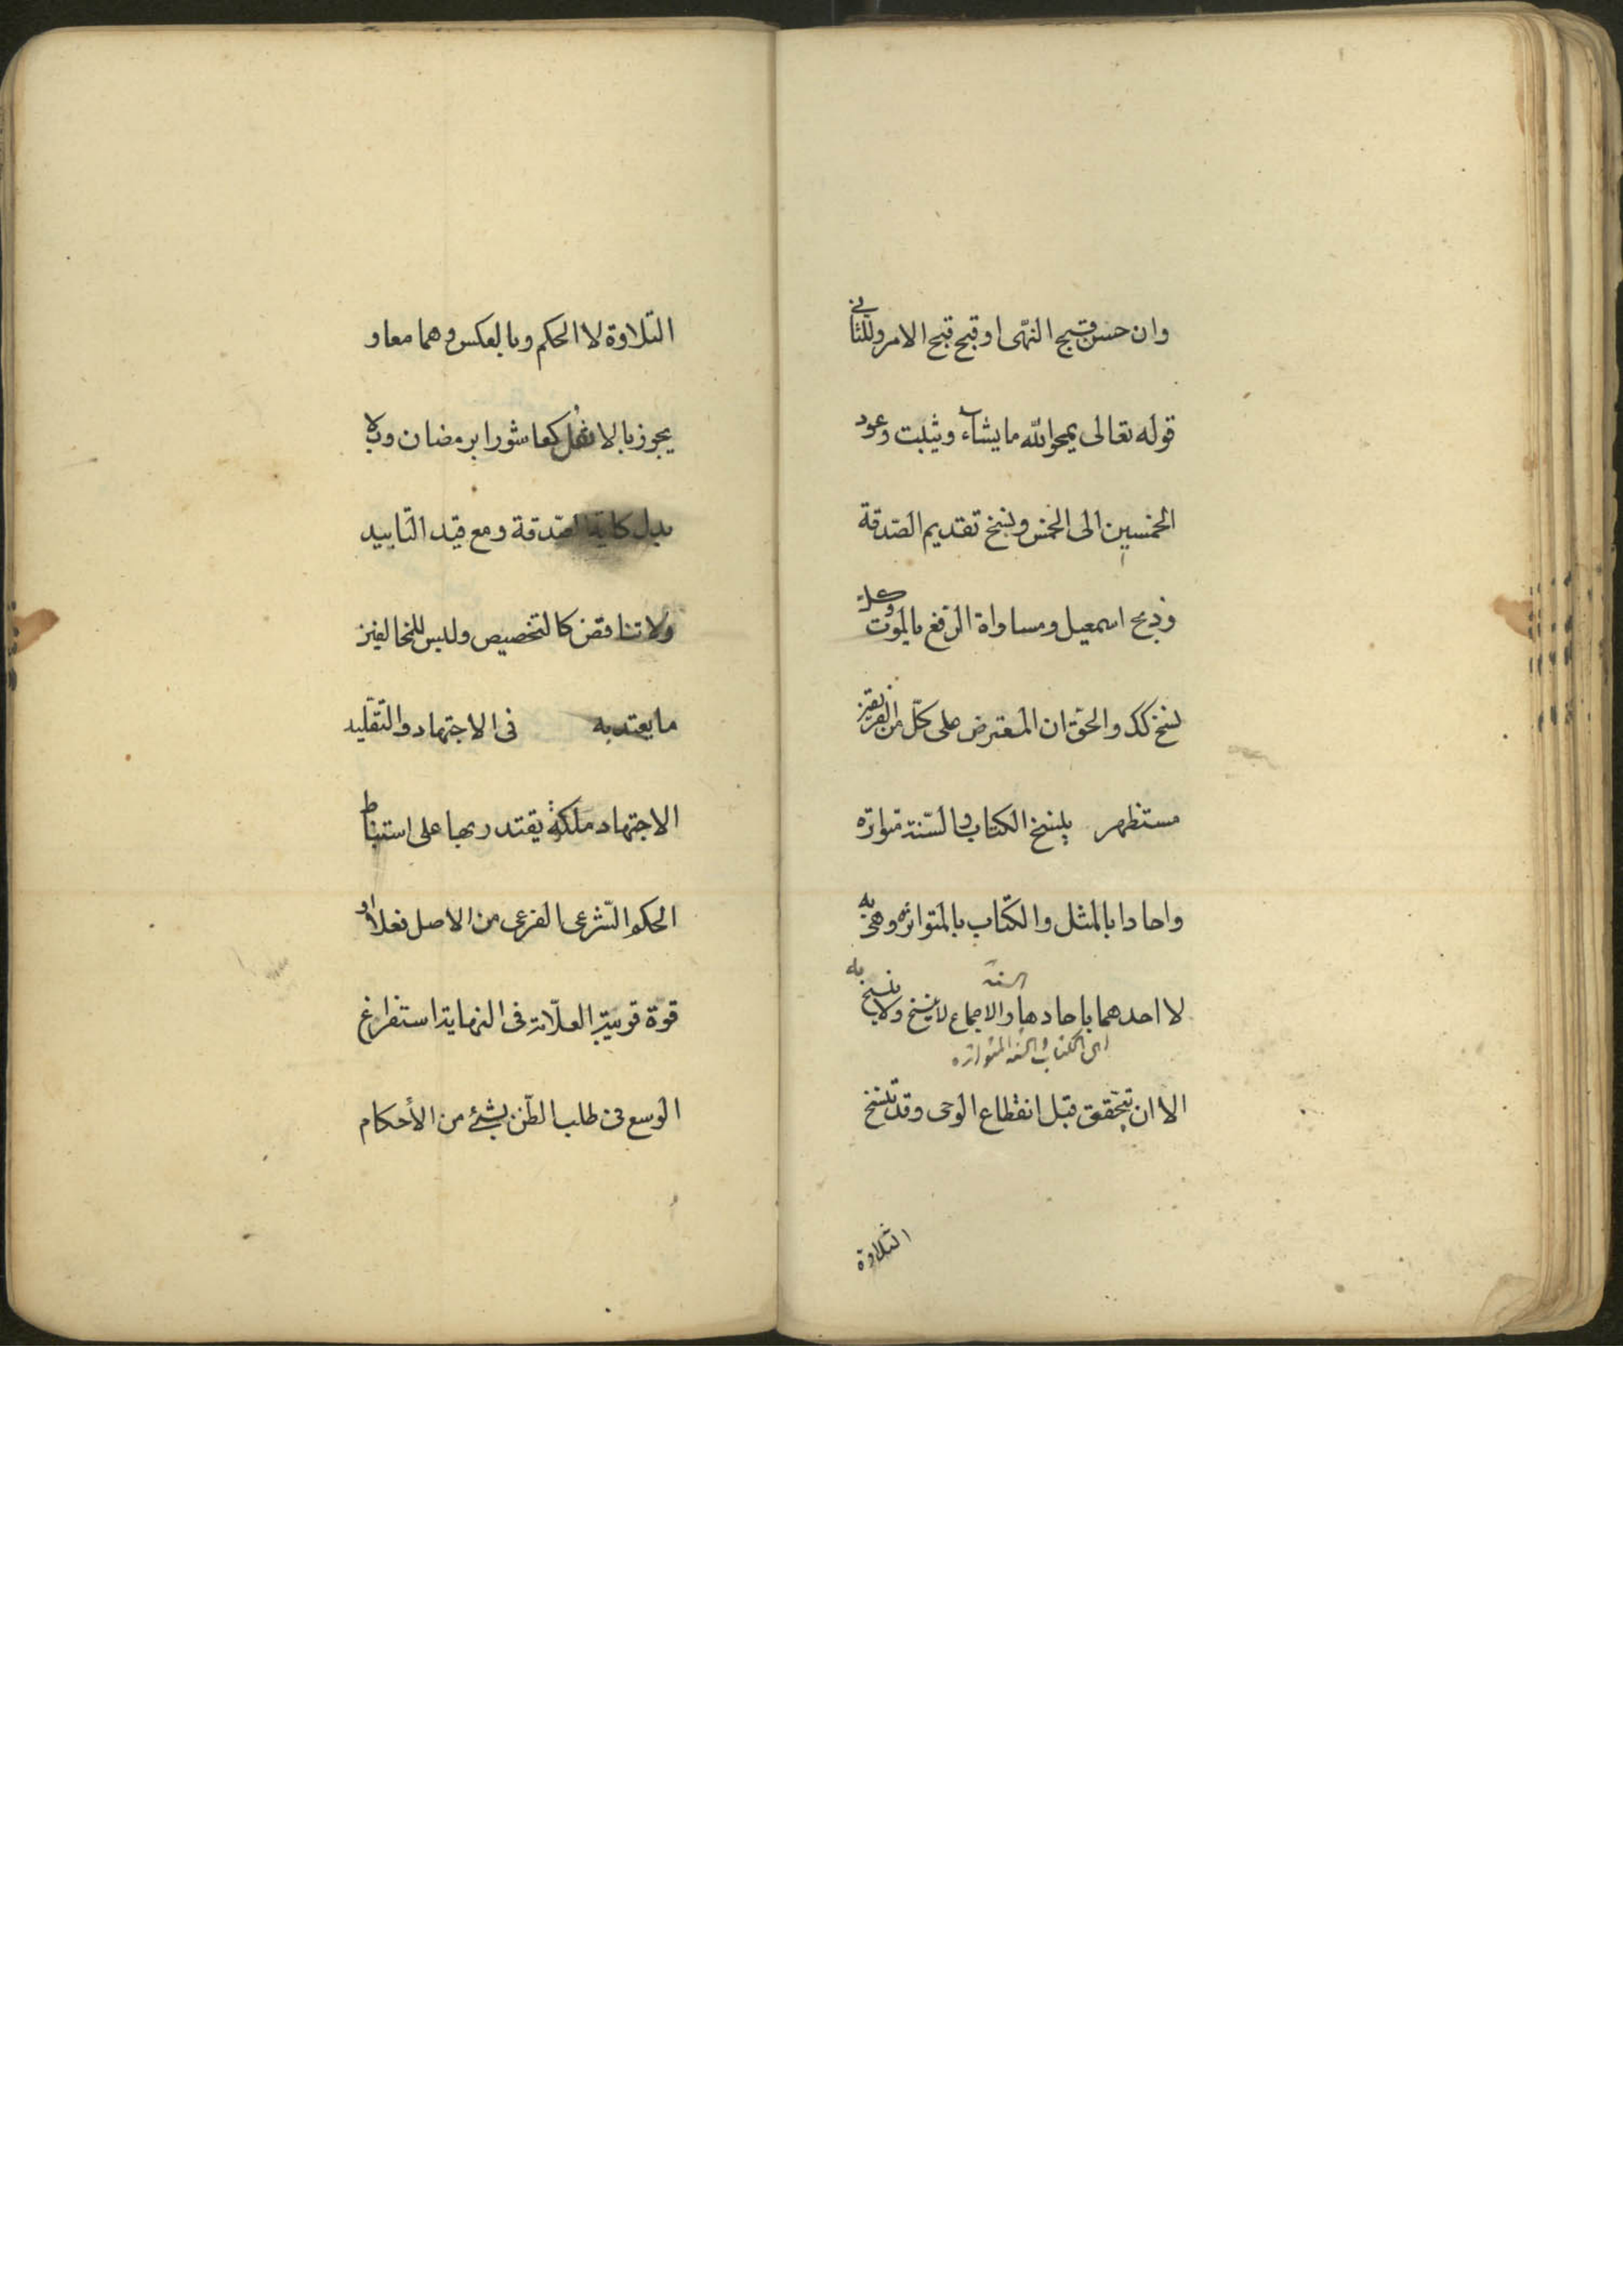 وان حسن قبح النهى او قبح قبح الامر وللثانى
قوله تعالى يمحوا الله ما يشاء ويثبت وعود
الخمسين الى الخمس ونسخ تقديم الصدقة
وذبح اسمعيل ومساواة الرفع بالموت وكل
نسخ كك والحق ان المعترض على كل من الفريقين
مستظهر ينسخ الكتاب والسنة متواترة
واحادا بالمثل والكتاب بالمتواترة وهى به
السنة
لا احدهما باحادها والاجماع لا ينسخ ولا ينسخ به
اى الكتاب والسنه المتواتره
الا ان يتحقق قبل انقطاع الوحى وقد تنسخ
التلاوة
التلاوة لا الحكم وبالعكس وهما معا و
يجوز بالاثقل كعاشورا برمضان وبلا
بدل كاية الصدقة ومع قيد التابيد
ولا تناقض كالتخصيص وليس للمخالفين
ما يعتد به في الاجتهاد والتقليد
الاجتهاد ملكة يقتدر بها على استنباط
الحكم الشرعى الفرعى من الاصل فعلا او
قوة قريبة العلامة فى النهاية استفراغ
الوسع فى طلب الظن بشئ من الأحكام